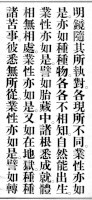 明鏡隨其所對質現像各不同業性亦如
是亦如田種子各各不相知自然能出生
業性亦如是譬如胎藏中諸根悉成就體
相無來處業性亦如是又如在地獄種種
諸苦事彼悉無所從業性亦如是譬如轉